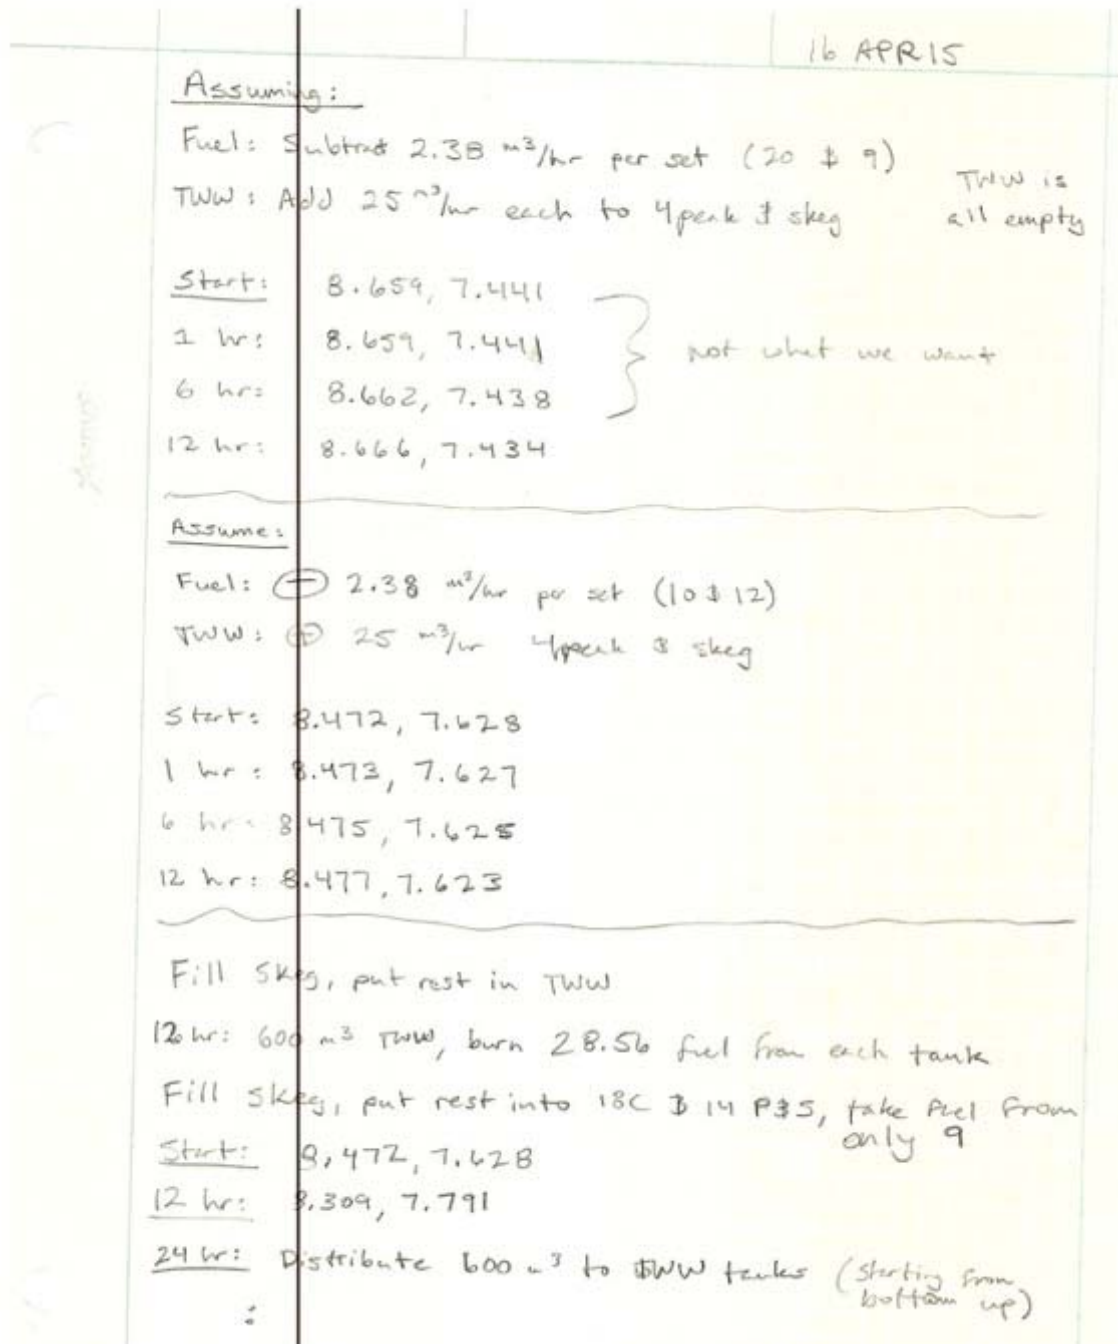 16 APR 15
Assuming:
Fuel: Subtract 2.38 m³/hr per set (20 & 9)
TWW: Add 25 m³/hr each to 4peak & skeg
TWW is
all empty
Start: 8.659, 7.441
1 hr: 8.659, 7.441
6 hr: 8.662, 7.438
12 hr: 8.666, 7.434
not what we want
Assume:
Fuel: ⊖ 2.38 m³/hr per set (10 & 12)
TWW: ⊕ 25 m³/hr 4peak & skeg
Start: 8.472, 7.628
1 hr: 8.473, 7.627
6 hr: 8.475, 7.625
12 hr: 8.477, 7.623
Fill skeg, put rest in TWW
12 hr: 600 m³ TWW, burn 28.56 fuel from each tank
Fill skeg, put rest into 18C & 14 P&S, take fuel from
only 9
Start: 8,472, 7.628
12 hr: 8.309, 7.791
24 hr: Distribute 600 m³ to TWW tanks (starting from
bottom up)
: